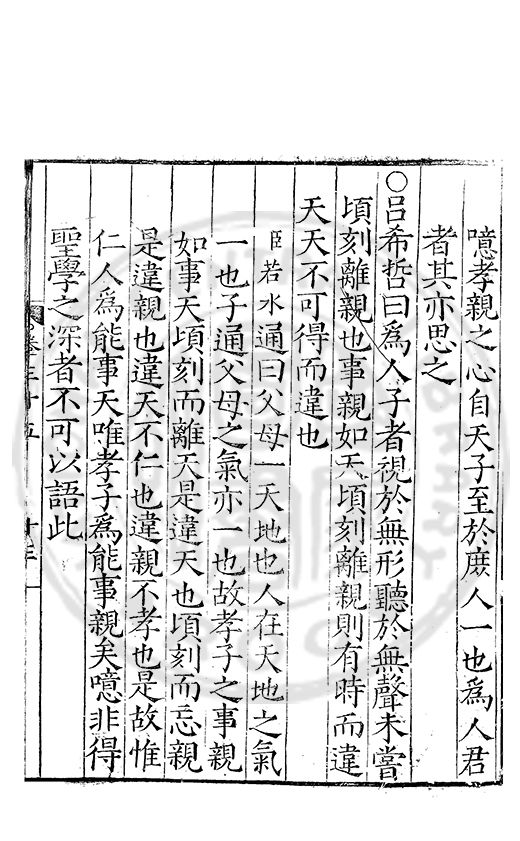 噫孝親之心自天子至於庶人一也爲人君
者其亦思之
○吕希哲曰爲人子者視於無形聽於無聲未嘗
頃刻離親也事親如天頃刻離親則有時而違
天天不可得而違也
臣若水通曰父母一天地也人在天地之氣
一也子通父母之氣亦一也故孝子之事親
如事天頃刻而離天是違天也頃刻而忘親
是違親也違天不仁也違親不孝也是故惟
仁人爲能事天唯孝子爲能事親矣噫非得
聖學之深者不可以語此
卷三十五
十三